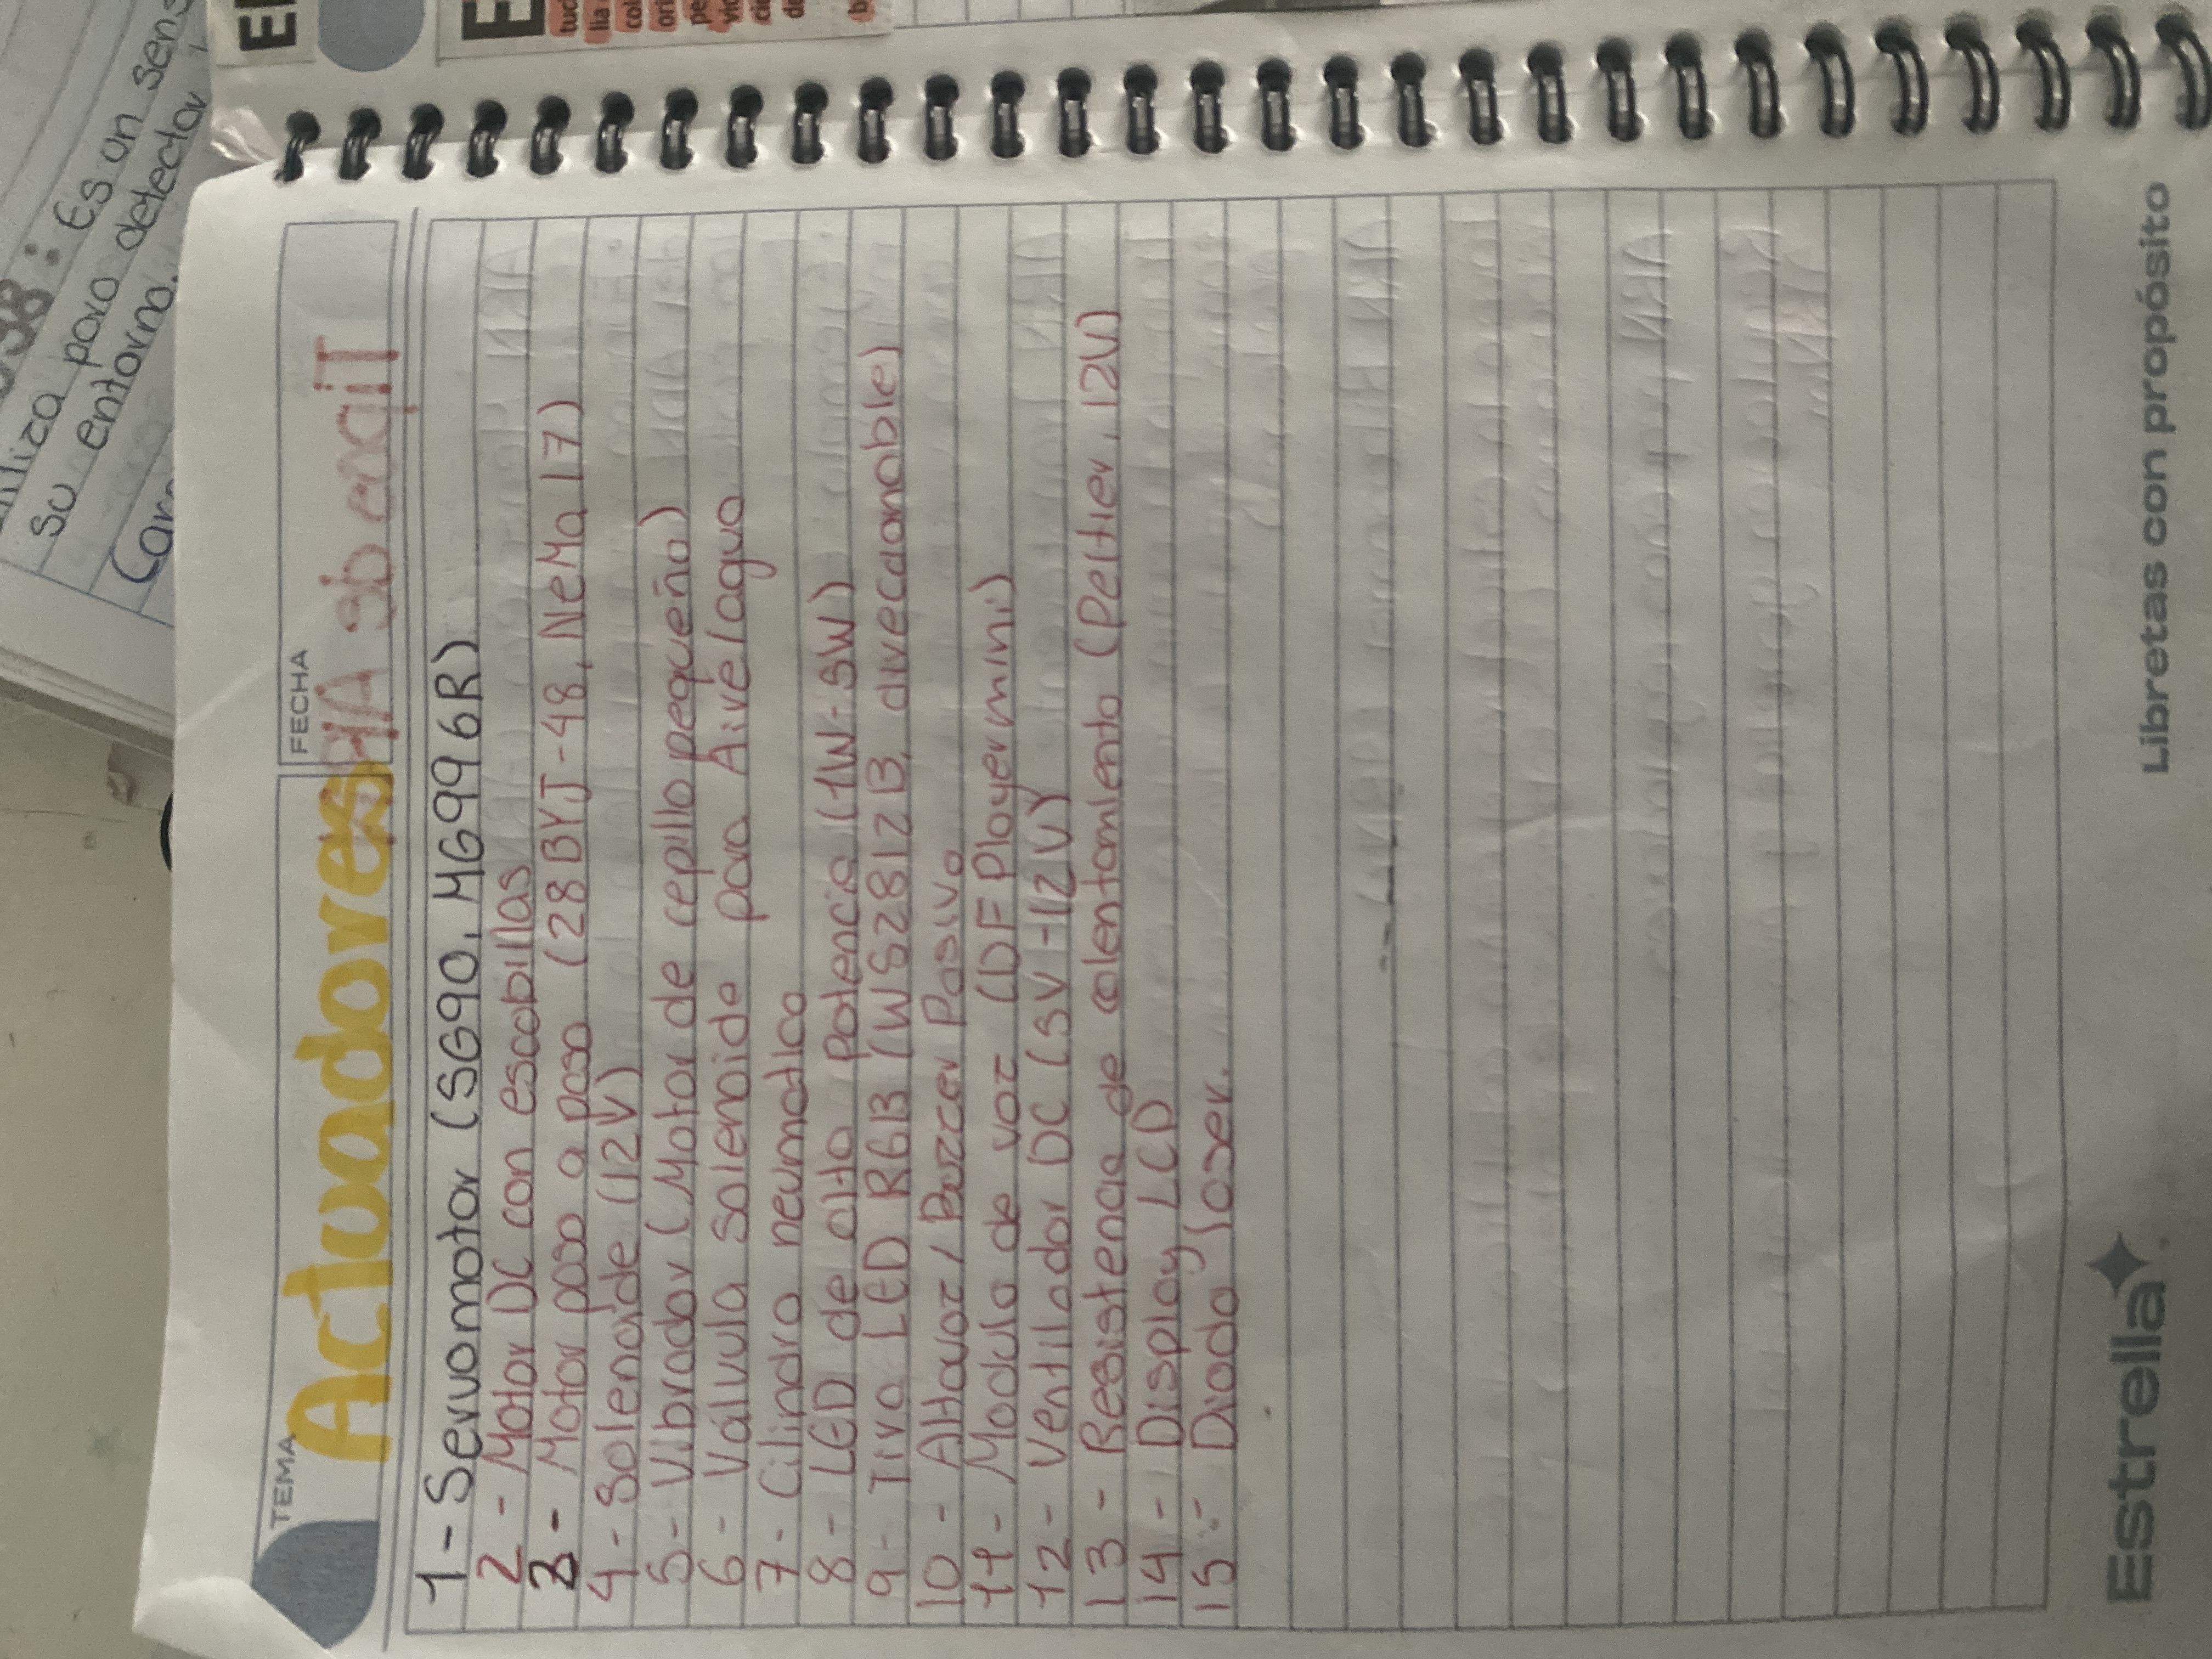 TEMA
FECHA
Actuadores
1- Servomotor (SG90, MG996R)
2- Motor DC con escobillas
3- Motor paso a paso (28BYJ-48, NeMa 17)
4- Solenoide (12V)
5- Vibrador (Motor de cepillo pequeño)
6- Válvula solenoide para Aire/agua
7- Cilindro neumatico
8- LED de alta potencia (1W-3W)
9- Tira LED RGB (WS2812B, direccionable)
10- Altavoz / Buzzer Pasivo
11- Modulo de voz (DFPlayer mini)
12- Ventilador DC (5V-12V)
13- Resistencia de calentamiento (Peltier, 12V)
14- Display LCD
15- Diodo laser.
Estrella
Libretas con propósito
Es un sens
para detectar
su entorno.